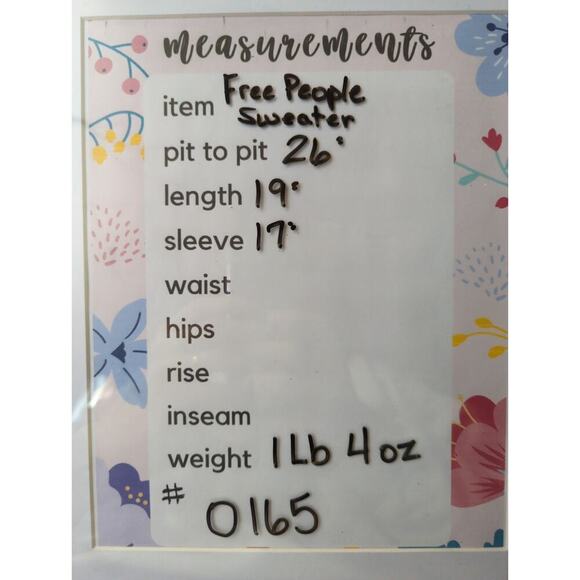 measurements
item Free People
Sweater
pit to pit 26"
length 19"
sleeve 17"
waist
hips
rise
inseam
weight 1 Lb 4 oz
# 0165